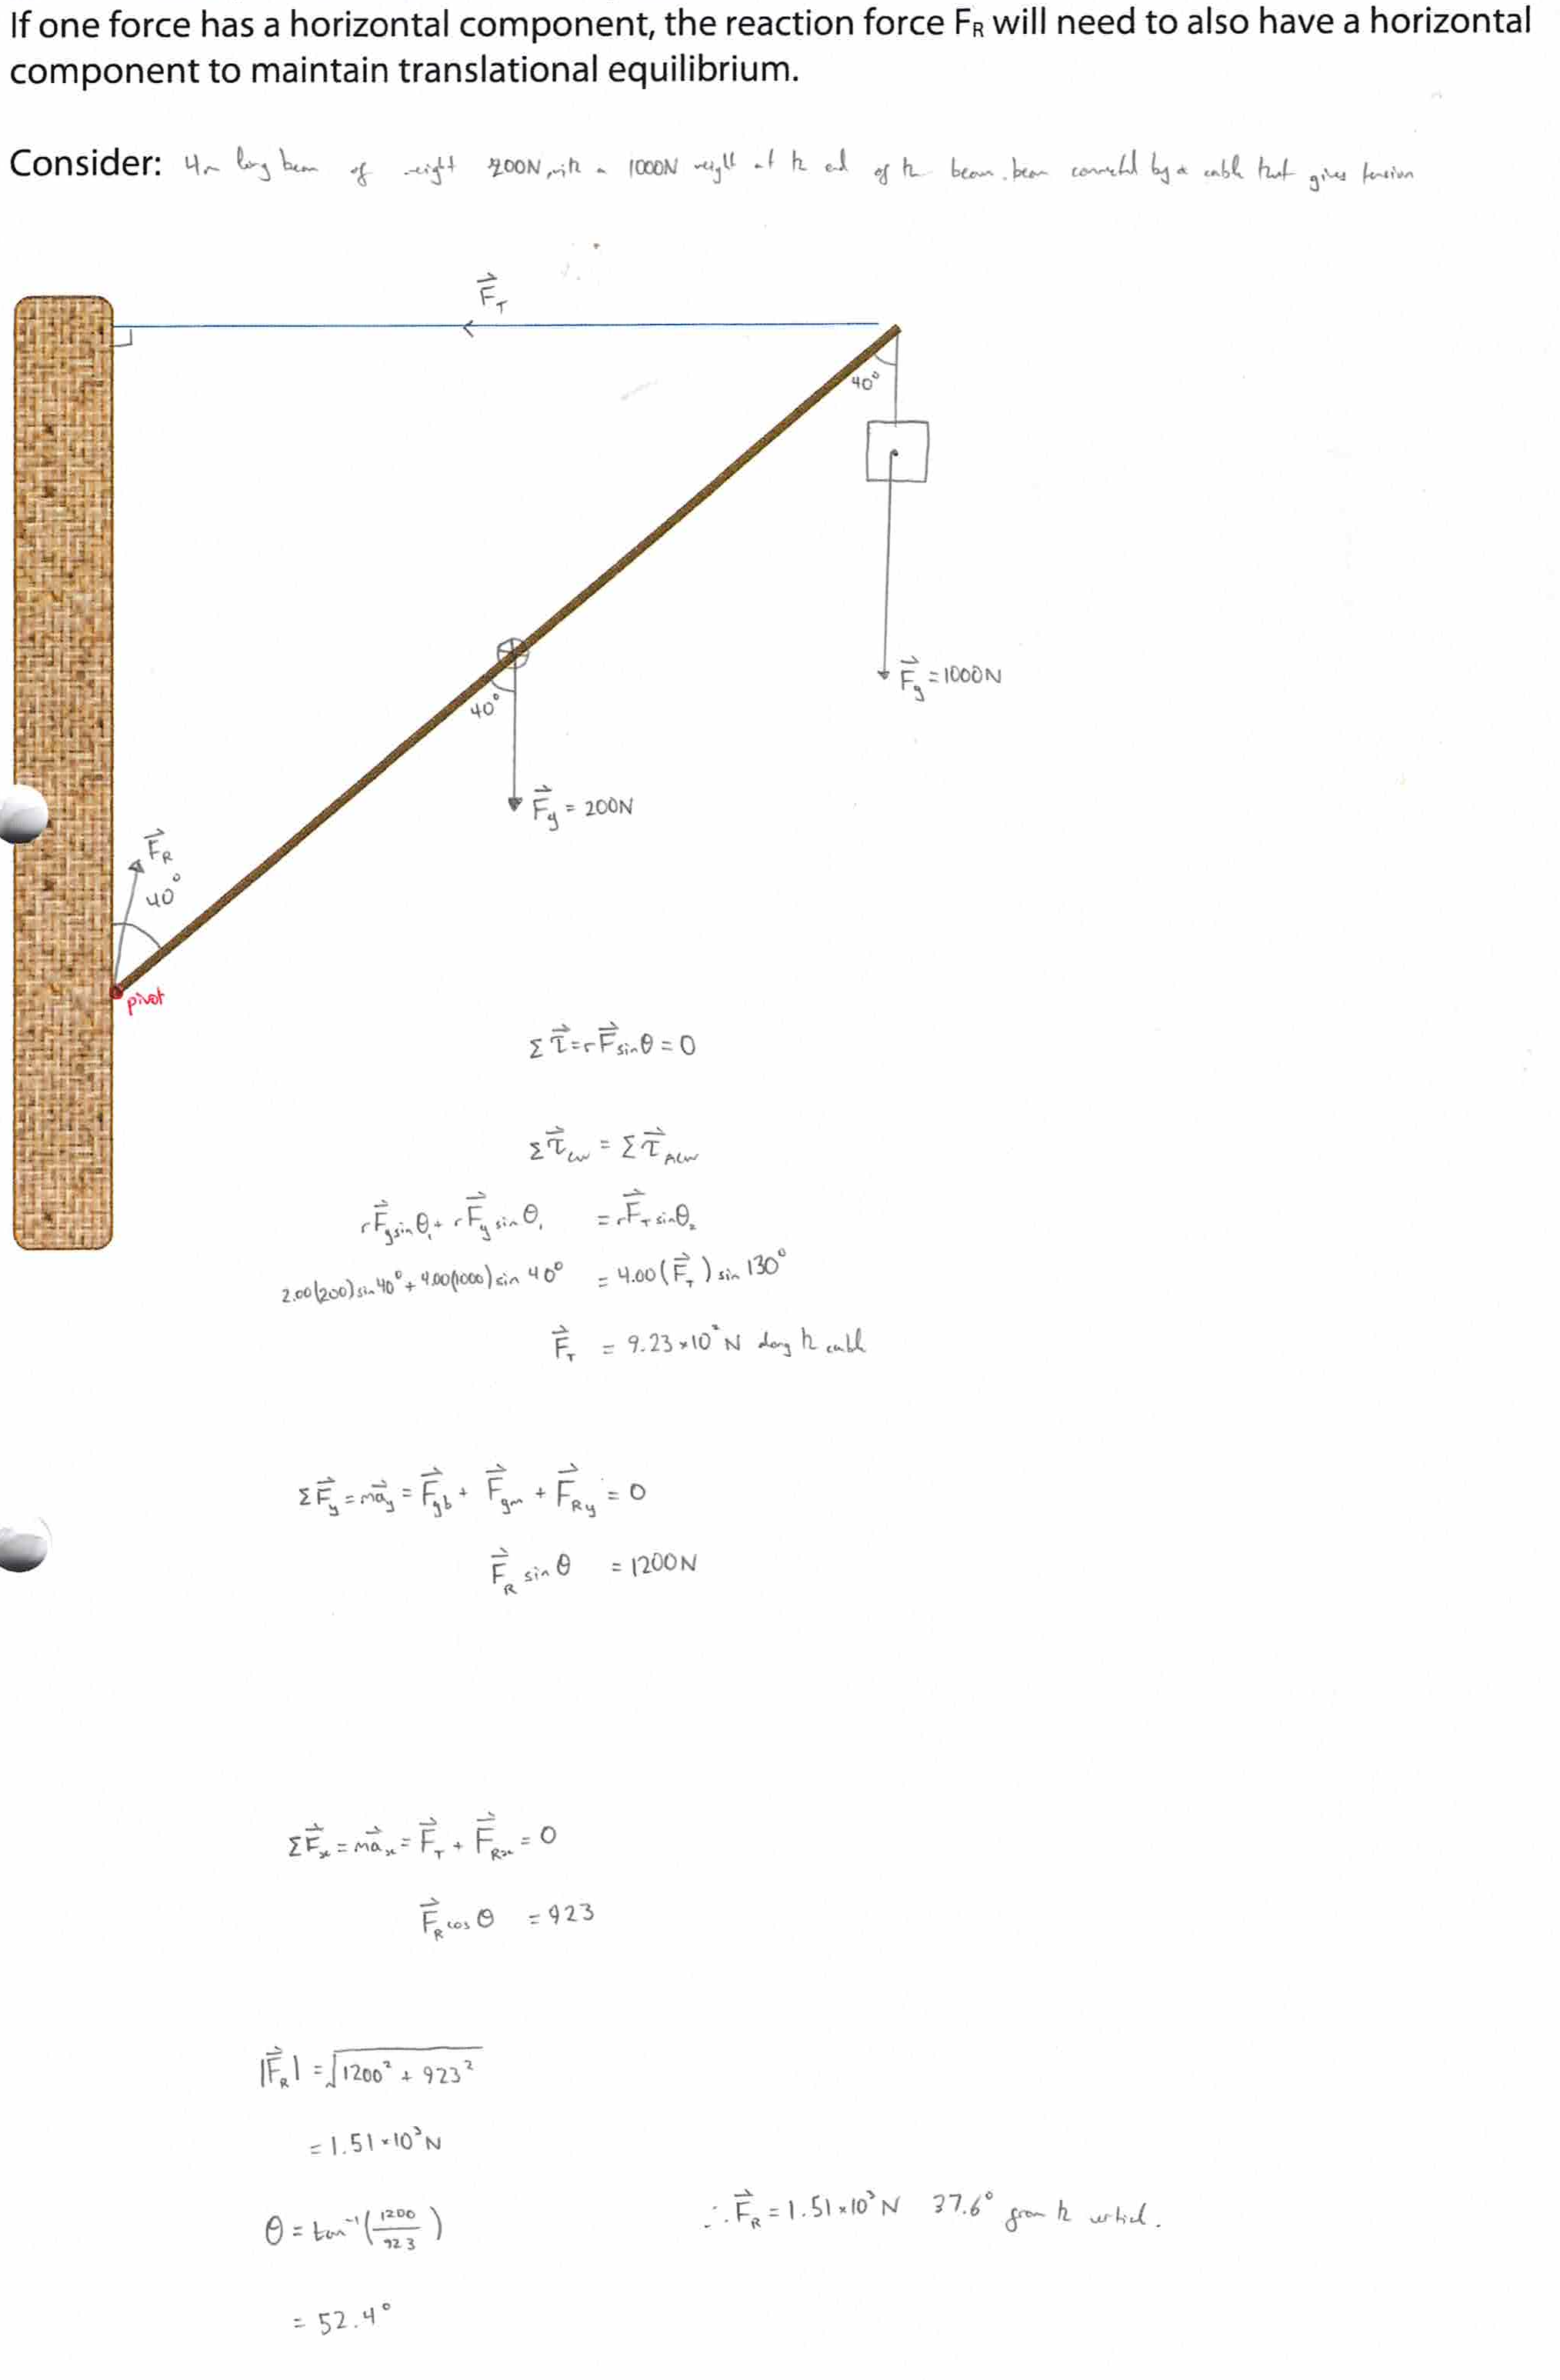 If one force has a horizontal component, the reaction force F_R will need to also have a horizontal
component to maintain translational equilibrium.
Consider: 4m long beam of weight 200N, with a 1000N weight at the end of the beam. beam connected by a cable that gives tension
F⃗_T
40°
F⃗_g = 1000N
40°
F⃗_g = 200N
F⃗_R
40°
pivot
Σ τ⃗ = r F⃗ sin θ = 0
Σ τ⃗_cw = Σ τ⃗_ACW
r F⃗_g sin θ₁ + r F⃗_g sin θ₁ = r F⃗_T sin θ₂
2.00(200) sin 40° + 4.00(1000) sin 40° = 4.00 (F⃗_T) sin 130°
F⃗_T = 9.23 × 10² N along the cable
Σ F⃗_y = m a⃗_y = F⃗_gb + F⃗_gm + F⃗_Ry = 0
F⃗_R sin θ = 1200N
Σ F⃗_x = m a⃗_x = F⃗_T + F⃗_Rx = 0
F⃗_R cos θ = 923
|F⃗_R| = √(1200² + 923²)
= 1.51 × 10³ N
θ = tan⁻¹(1200/923)
∴ F⃗_R = 1.51 × 10³ N 37.6° from the vertical.
= 52.4°